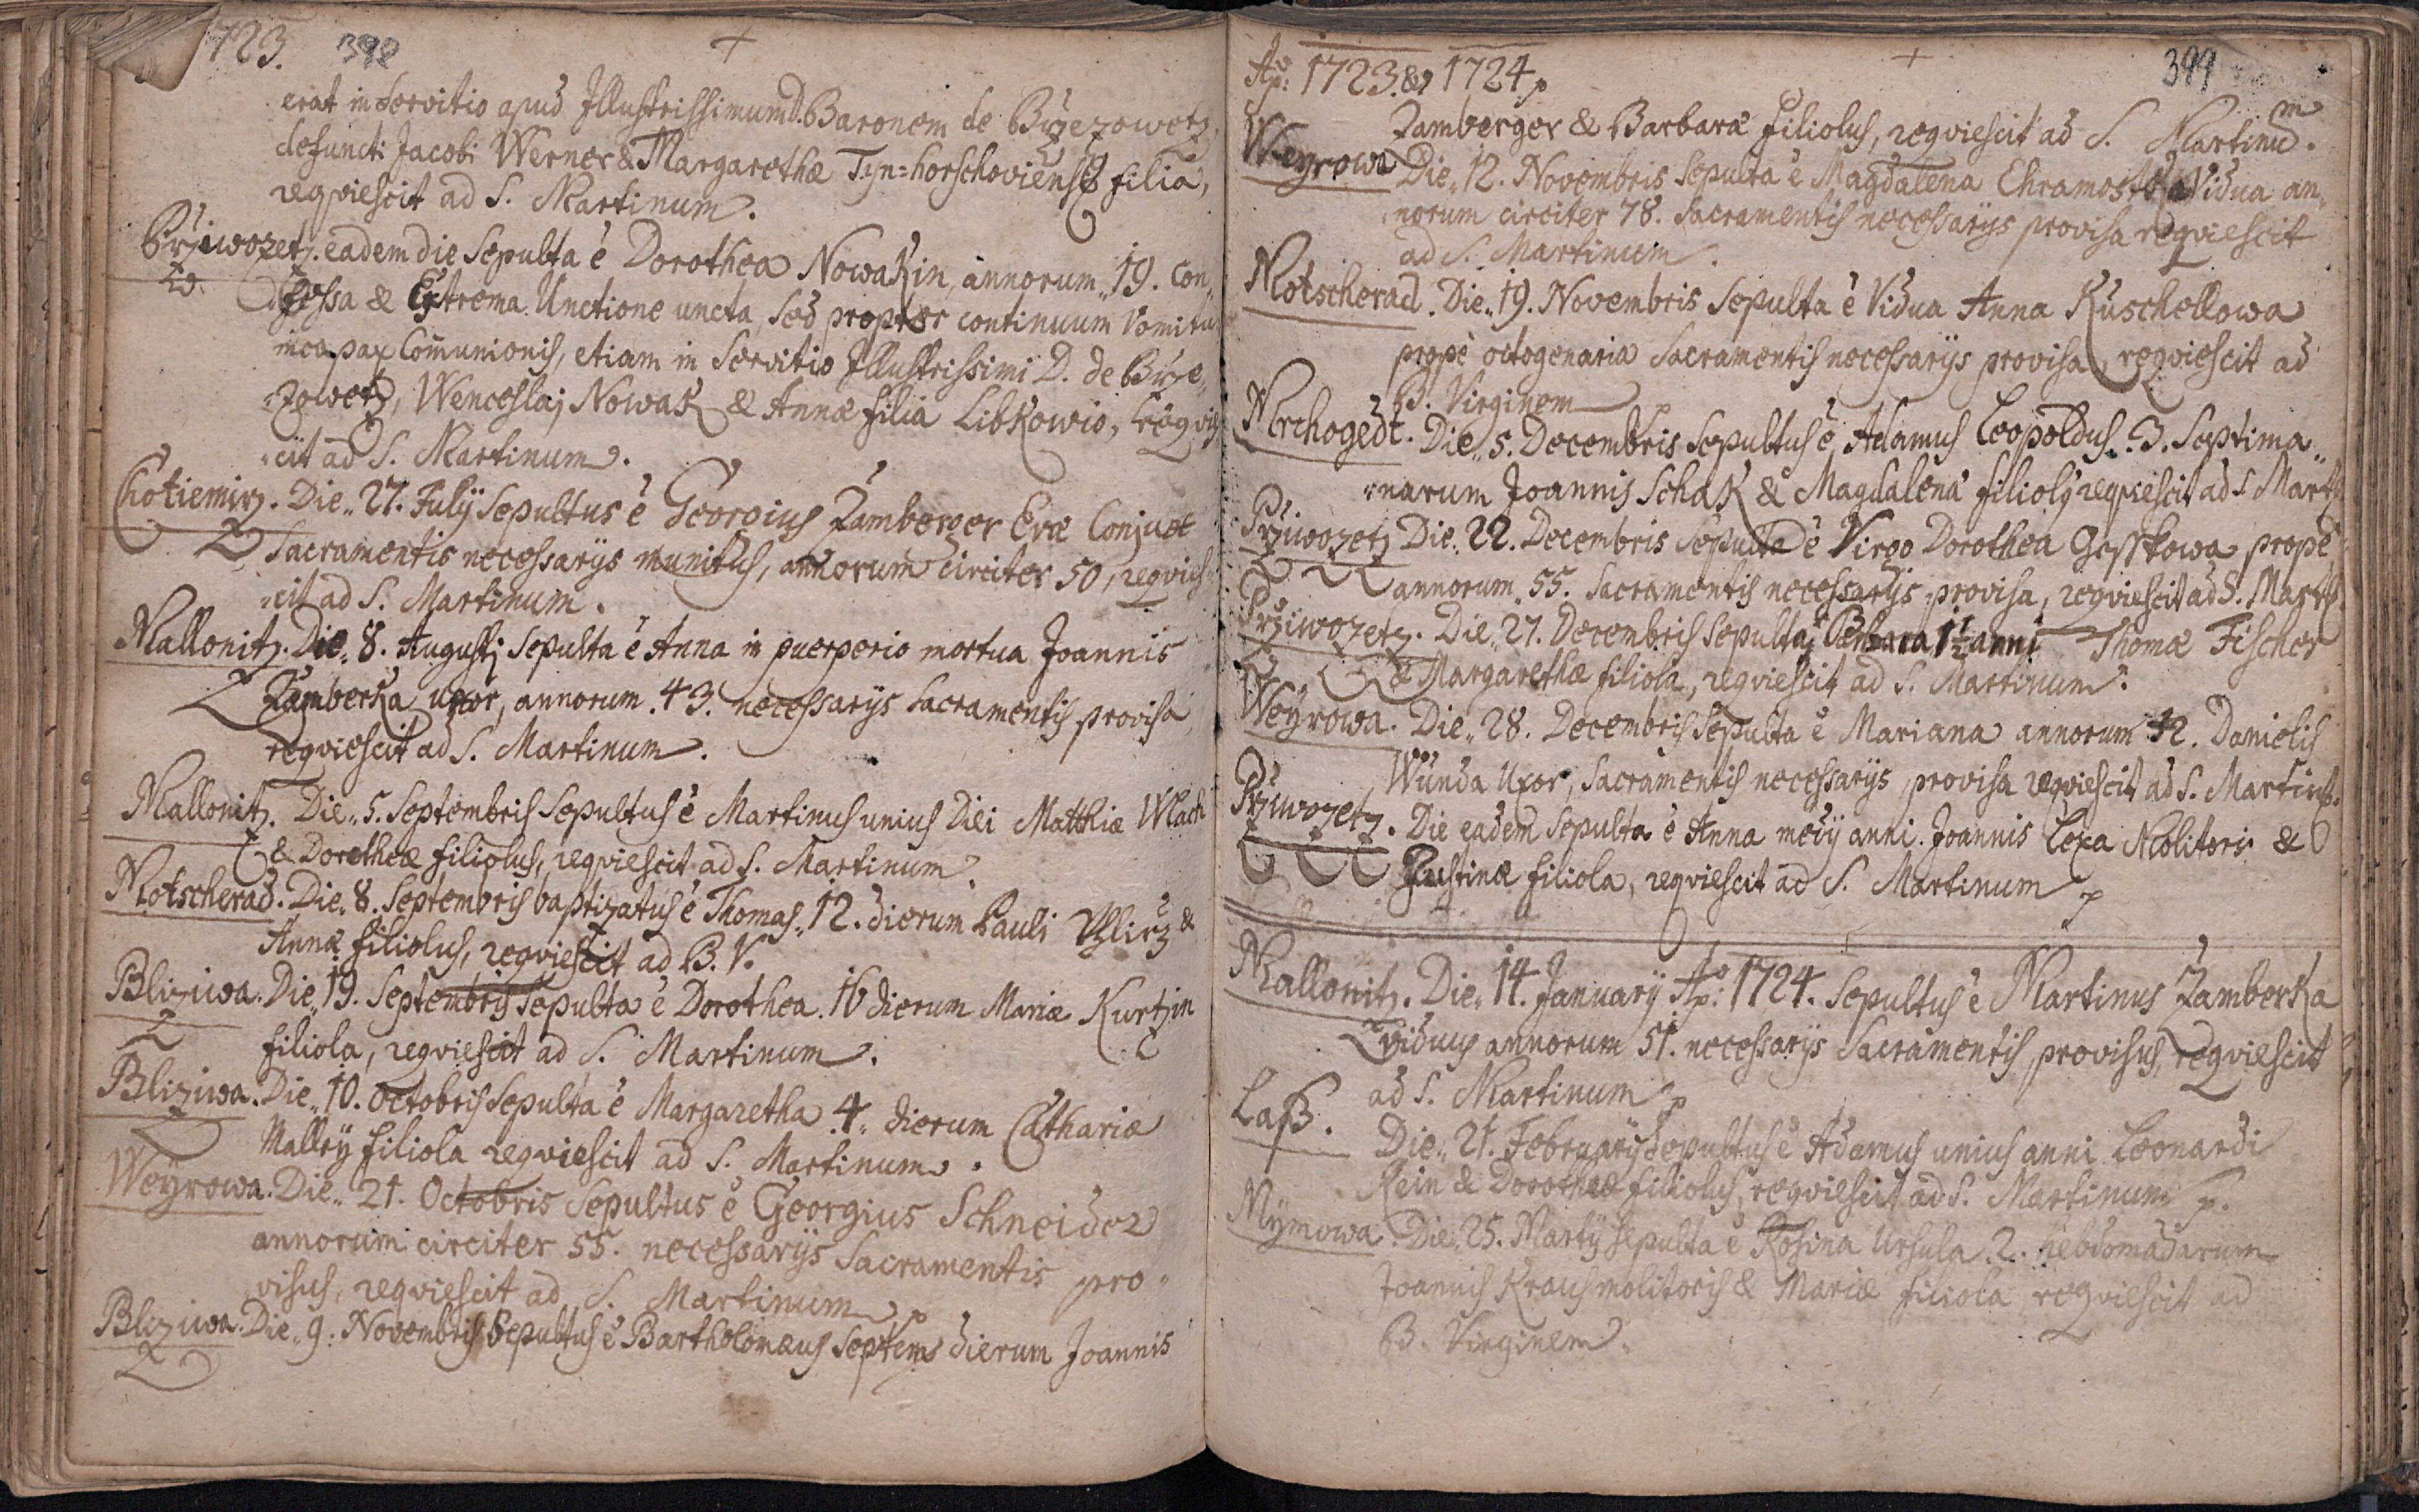 1723. 398 +
erat in Servitio apud Illustrissimum D. Baronem de Brzezowetz,
defuncti Jacobi Werner & Margarethæ Tyn=horschoviensis filia,
reqviescit ad S. Martinum.
Przjwozetz. eadem die Sepulta ẽ Dorothea Nowakin, annorum 19. Con„
fessa & Extrema Unctione uncta, sed propter continuum Vomitu
incapax Com̄unionis, etiam in Servitio Illustrissimi D. de Brze„
„zowetz, Wenceslaj Nowak & Annæ filia Libkowio, reqvies
„cit ad S. Martinum.
Chotiemirz. Die„ 27. Julij Sepultus ẽ Georgius Zamberger Evæ Conjux
Sacramentis necessarijs munitus, annorum circiter 50, reqvies„
„cit ad S. Martinum.
Mallonitz. Die„ 8. Augustj Sepulta ẽ Anna in puerperio mortua Joannis
Zamberka uxor, annorum 43. necessarijs Sacramentis provisa,
reqviescit ad S. Martinum.
Mallonitz. Die„ 5. Septembris Sepultus ẽ Martinus unius Diei Matthiæ Wlach
& Dorotheæ filiolus, reqviescit ad S. Martinum.
Motscherad. Die„ 8. Septembris baptizatus ẽ Thomas„ 12. dierum Pauli &
Annæ filiolus, reqviescit ad B. V.
Bliziwa. Die„ 19. Septembris Sepulta ẽ Dorothea. 16 dierum Mariæ Kurtzin
filiola, reqviescit ad S. Martinum.
Bliziwa. Die„ 10. Octobris Sepulta ẽ Margaretha 4„ dierum Cathariæ
Malley filiola reqviescit ad S. Martinum.
Weyrowa. Die„ 21. Octobris Sepultus ẽ Georgius Schneider
annorum circiter 55. necessarijs Sacramentis pro„
visus, reqviescit ad S. Martinum
Bliziwa. Die„ 9. Novembris Sepultus ẽ Bartholomæus Septem dierum Joannis
Aõ: 1723. & 1724. + 399
Zamberger & Barbaræ filiolus, reqviescit ad S. Martinum.
Weyrowa Die„ 12. Novembris Sepulta ẽ Magdalena Chramostka Vidua an„
norum circiter 78. Sacramentis necessarijs provisa reqviescit
ad S. Martinum.
Motscherad. Die„ 19. Novembris Sepulta ẽ Vidua Anna Kuschellowa
propè octogenaria Sacramentis necessarijs provisa, reqviescit ad
B. Virginem
Mrchogedt. Die„ 5. Decembris Sepultus ẽ Adamus Leopoldus. 3. Septima„
„narum Joannis Schak & Magdalenæ filiolus reqviescit ad S Mart
Przjwozetz Die„ 22. Decembris Sepulta ẽ Virgo Dorothea Gesskowa propè
annorum 55. Sacramentis necessarijs provisa, reqviescit ad S. Mart
Przjwozetz. Die„ 27. Decembris Sepulta Barbara 1½ anni Thomæ Fischer
& Margarethæ filiola, reqviescit ad S. Martinum.
Weyrowa. Die„ 28. Decembris Sepulta ẽ Mariana annorum 42. Danielis
Wunda Uxor, Sacramentis necessarijs provisa reqviescit ad S. Martin
Przjwozetz. Die eadem Sepulta ẽ Anna medij anni. Joannis Lexa Molitoris &
Justinæ filiola, reqviescit ad S. Martinum
Mallonitz. Die„ 14. January Aõ: 1724. Sepultus ẽ Martinus Zamberka
viduus annorum 51. necessarijs Sacramentis provisus, reqviescit
ad S. Martinum
Laß. Die„ 21. Februarij Sepultus ẽ Adamus unius anni Leonardi
Rein & Dorotheæ filiolus, reqviescit ad S. Martinum
Mymowa. Die„ 25. Martij Sepulta ẽ Rosina Ursula 2. hebdomadarum
Joannis Kraus molitoris & Mariæ filiola reqviescit ad
B. Virginem.